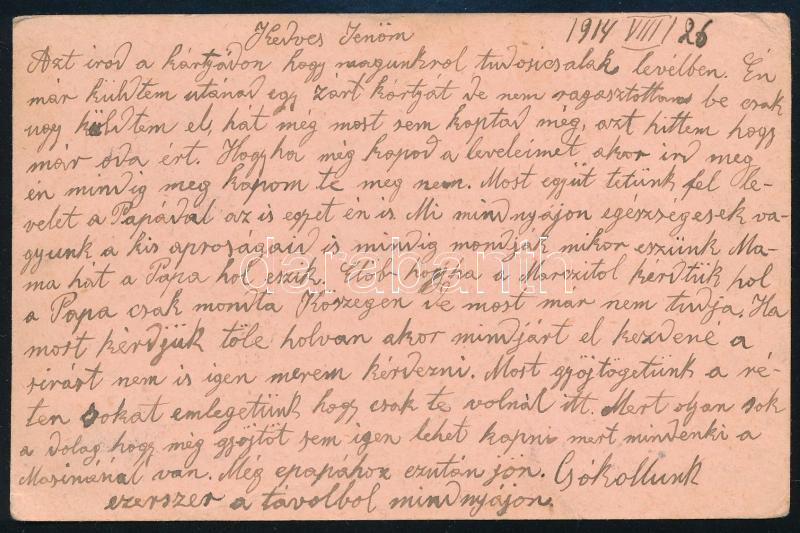 Kedves Jenőm 1914 VIII/26
Azt irod a kártyádon hogy magunkrol tudosicsalak levelben. Én
már küldtem utánad egy zárt kártyát de nem ragasztottam be csak
ugy küldtem el, hát még most sem kaptad még, azt hittem hogy
már oda ért. Hogyha még kapod a leveleimet akor ird meg
én mindig meg kapom te meg nem. Most együt tetünk fel le-
velet a Papádal az is egyet én is. Mi mindnyájon egészségesek va-
gyunk a kis aproságaid is mindig mondják mikor eszünk Ma-
ma hát a Papa hol eszik. Töb- hogyha a Marczitol kérdtük hol
a Papa csak mondta Kőszegen de most már nem tudja. Ha
most kérdjük töle holvan akor mindjárt el kezdené a
sirást nem is igen merem kérdezni. Most gyöjtögetünk a ré-
ten sokat emlegetünk hogy csak te volnál itt. Mert olyan sok
a dolog hogy még gyöjtöt sem igen lehet kapni mert mindenki a
Masinánál van. Még epapához ezután jön. Csókollunk
ezerszer a távolbol mindnyájon.
darabanth